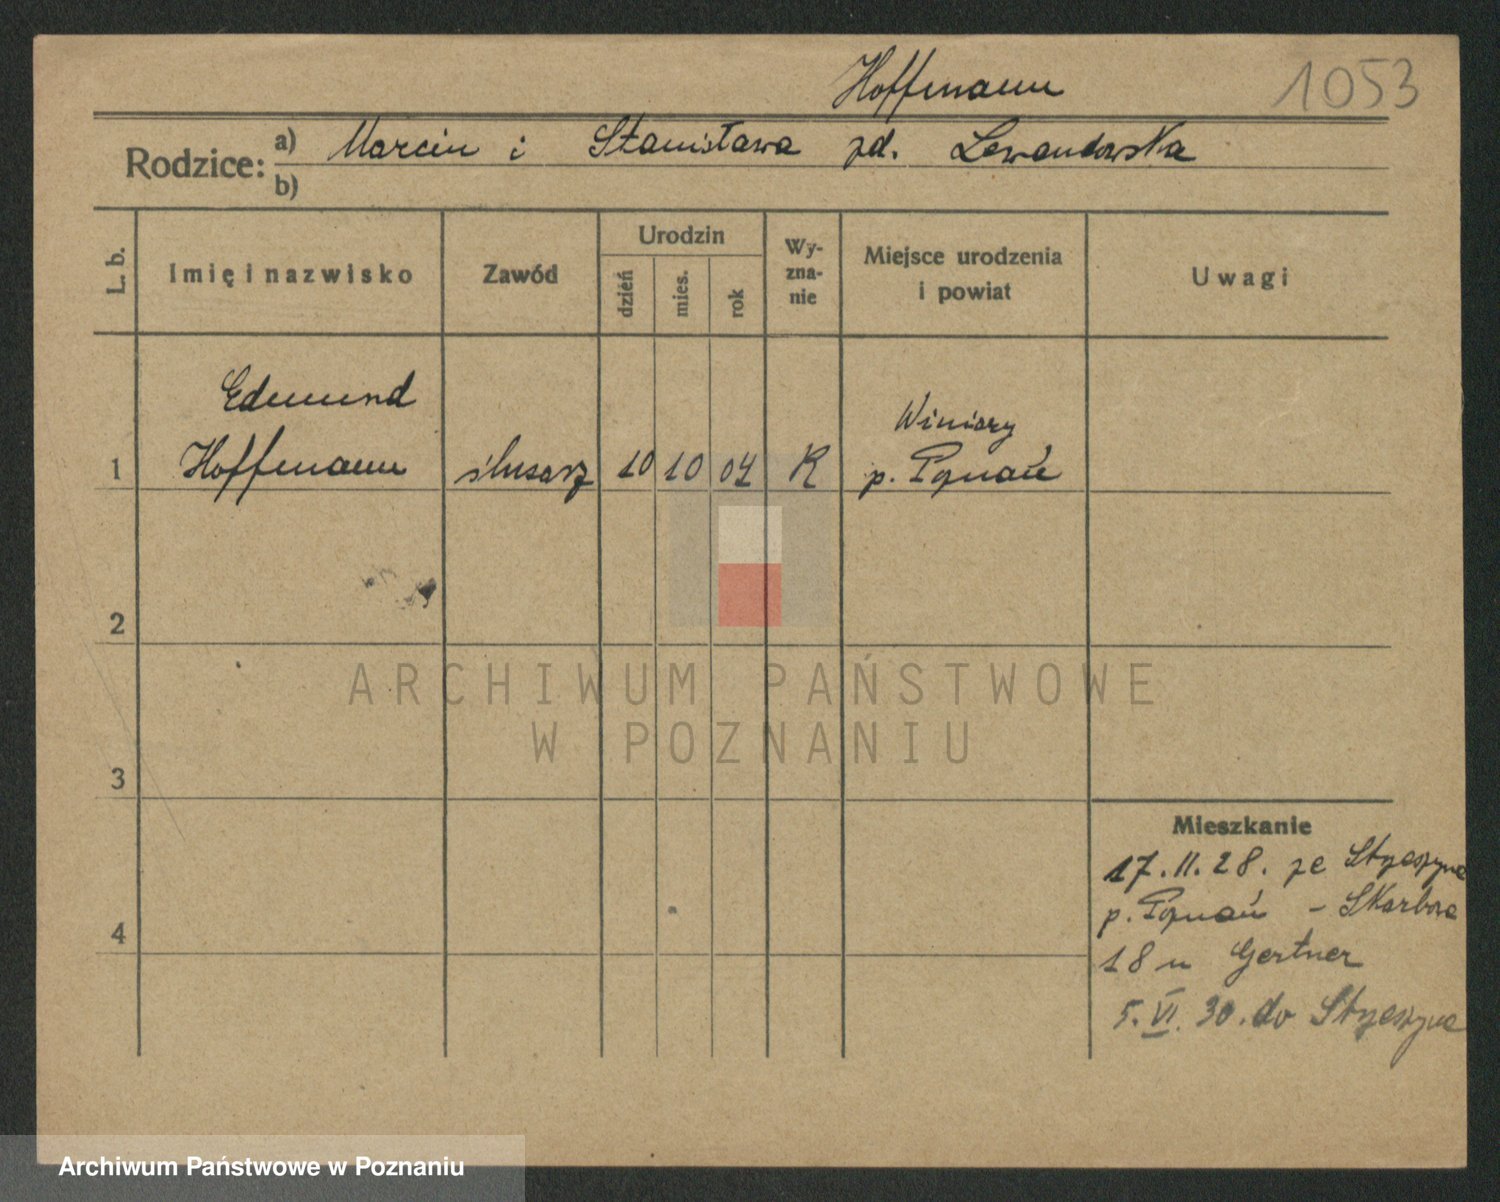 Hoffmann 1053
Rodzice: a) Marcin i Stanisława zd. Lewandowska
b)
L. b. Imię i nazwisko Zawód Urodzin dzień mies. rok Wy-zna-nie Miejsce urodzenia i powiat Uwagi
Edmund Winiary
1 Hoffmann ślusarz 10 10 04 K p. Poznań
2
3
4
Mieszkanie
17.11.28. ze Strzeszyna
p. Poznań - Skarbowa
18 u Gertner
5.VI.30. do Strzeszyna
ARCHIWUM PAŃSTWOWE
W POZNANIU
Archiwum Państwowe w Poznaniu